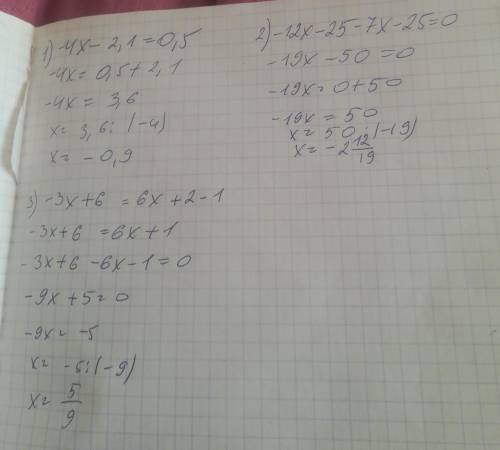 1) -4x - 2,1 = 0,5
-4x = 0,5 + 2,1
-4x = 3,6
x = 3,6 : (-4)
x = -0,9
2) -12x - 25 - 7x - 25 = 0
-19x - 50 = 0
-19x = 0 + 50
-19x = 50
x = 50 : (-19)
x = -2 12/19
3) -3x + 6 = 6x + 2 - 1
-3x + 6 = 6x + 1
-3x + 6 - 6x - 1 = 0
-9x + 5 = 0
-9x = -5
x = -5 : (-9)
x = 5/9